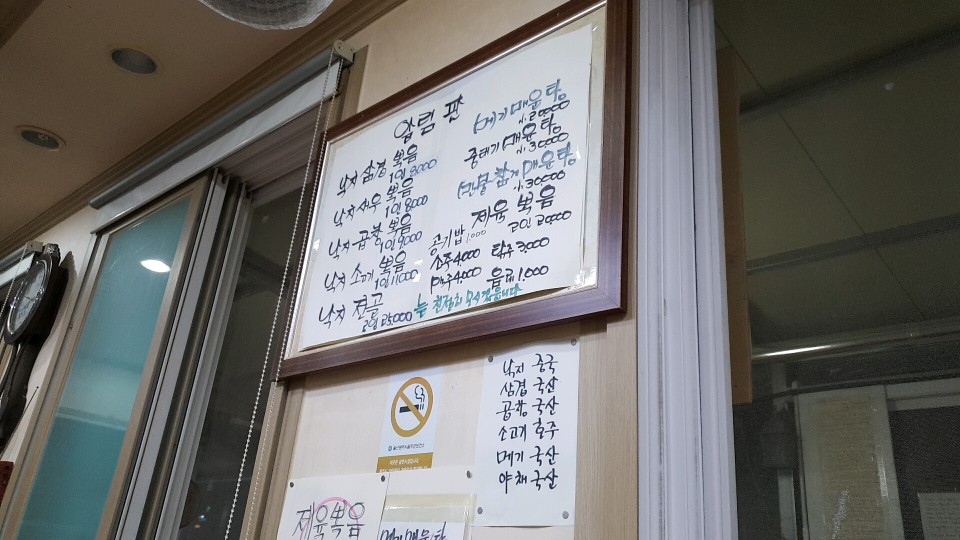 알림판
낙지 삼겹 볶음
1인 8000
낙지 새우 볶음
1인 8000
낙지 곱창 볶음
1인 9000
낙지 소고기 볶음
1인 11000
낙지 전골
2인 25000
메기 매운탕
동태 매운탕
매운탕
30000
제육 볶음
2인 20000
공기밥 1,000
소주 4,000 탁주 3,000
맥주 4,000 음료 1,000
늘 친절히 모시겠습니다
낙지 중국
삼겹 국산
곱창 국산
소고기 호주
메기 국산
야채 국산
제육볶음
메기매운탕